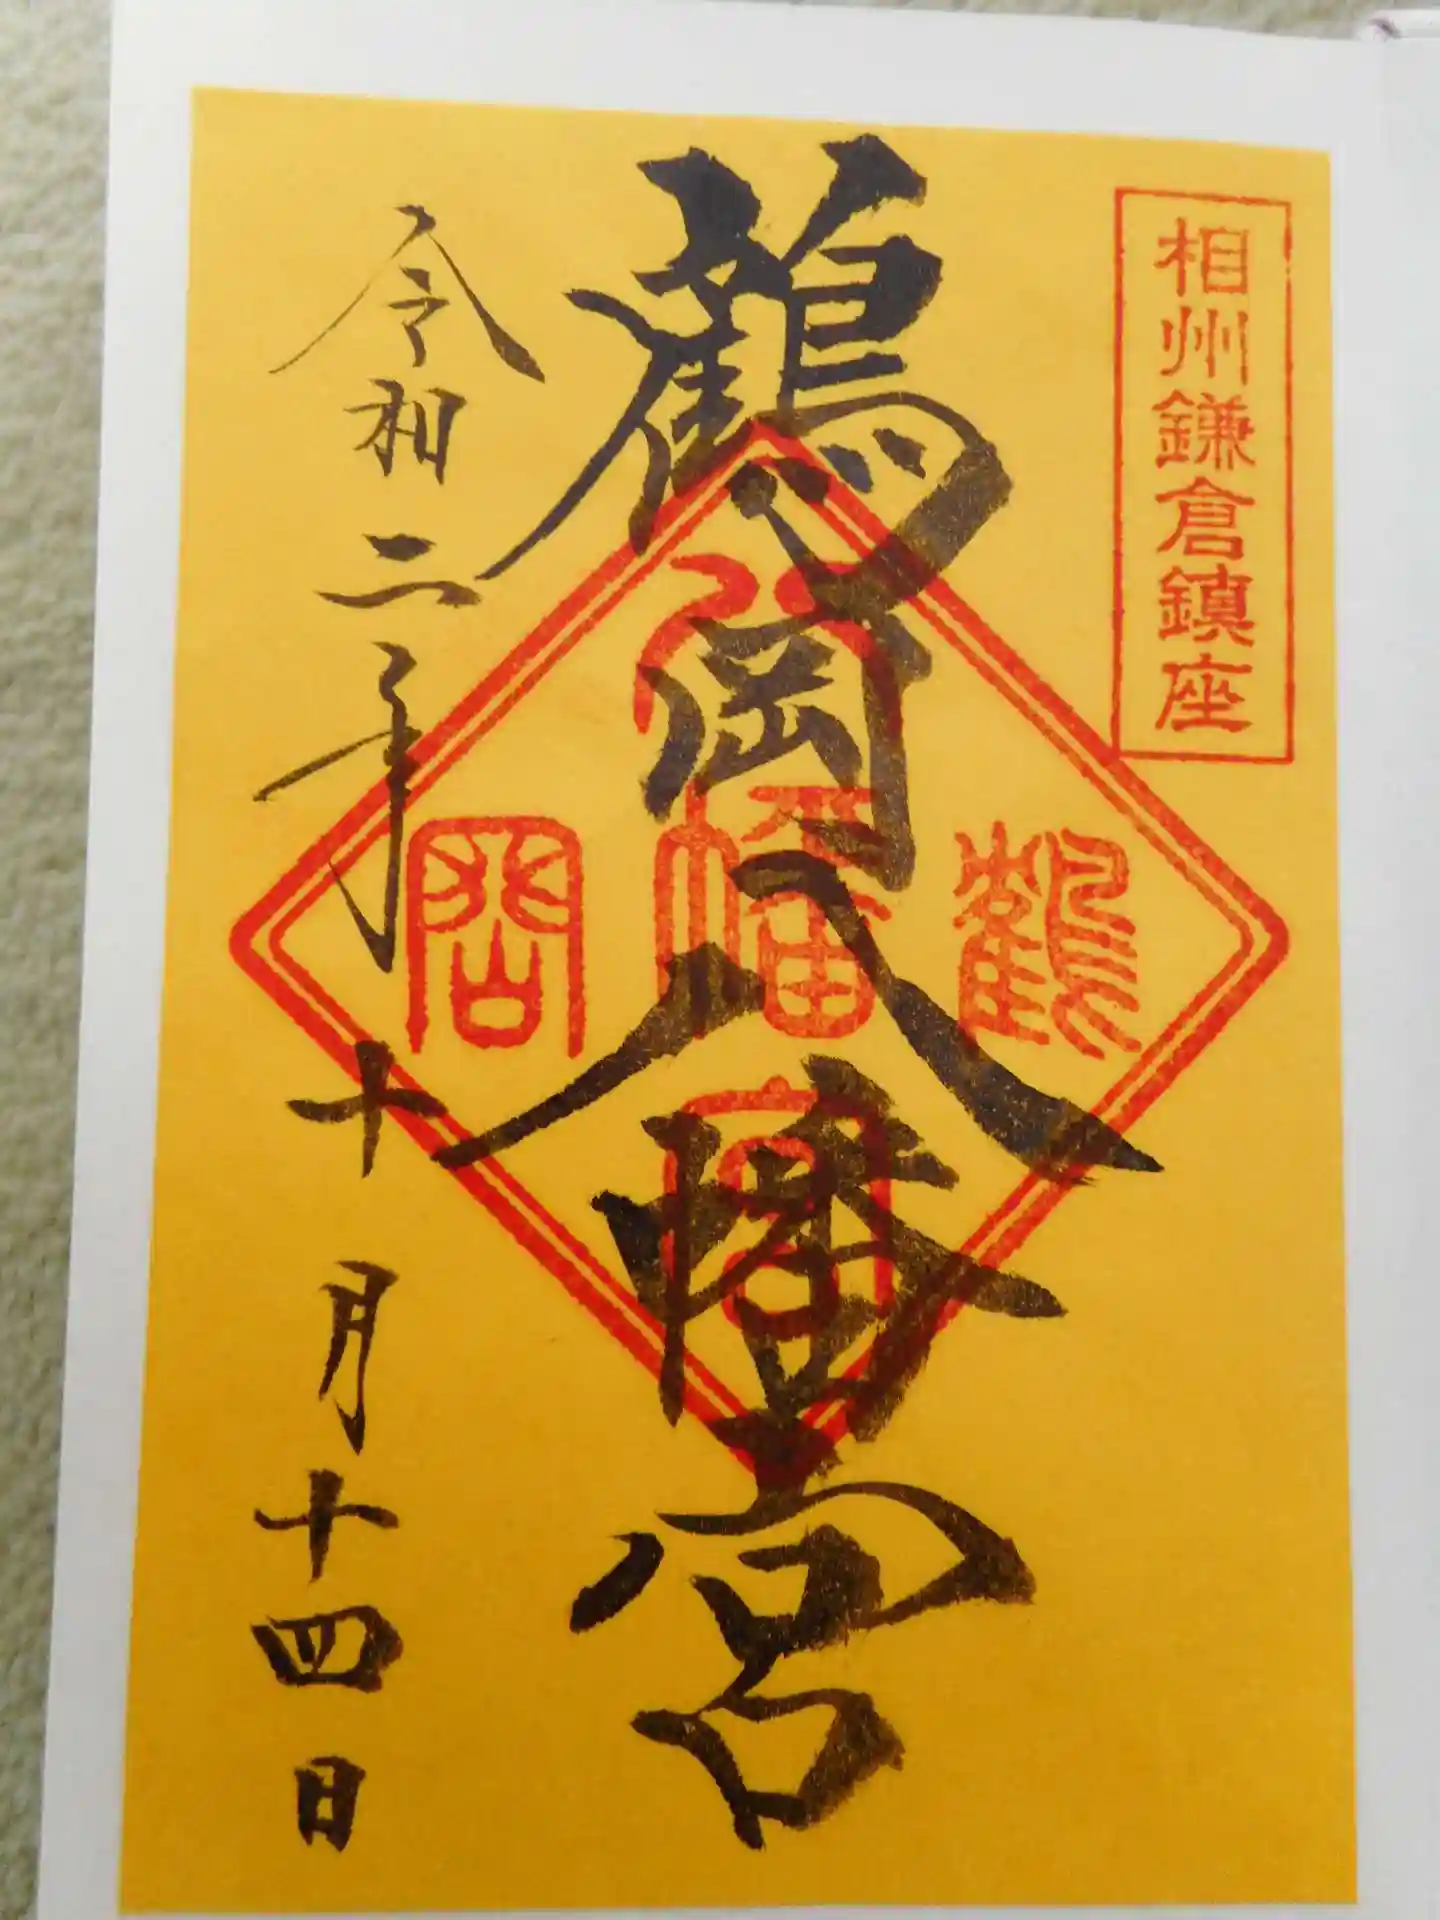 相州鎌倉鎮座
鶴岡八幡宮
鶴
八幡宮
岡
令和二年十月十四日